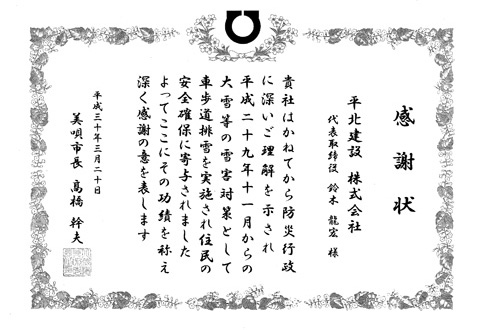 感謝状
平北建設 株式会社
代表取締役 鈴木 龍宏 様
貴社はかねてから防災行政
に深いご理解を示され
平成二十九年十一月からの
大雪等の雪害対策として
車歩道排雪を実施され住民の
安全確保に寄与されました
よってここにその功績を称え
深く感謝の意を表します
平成三十年三月二十日
美唄市長 髙橋 幹夫